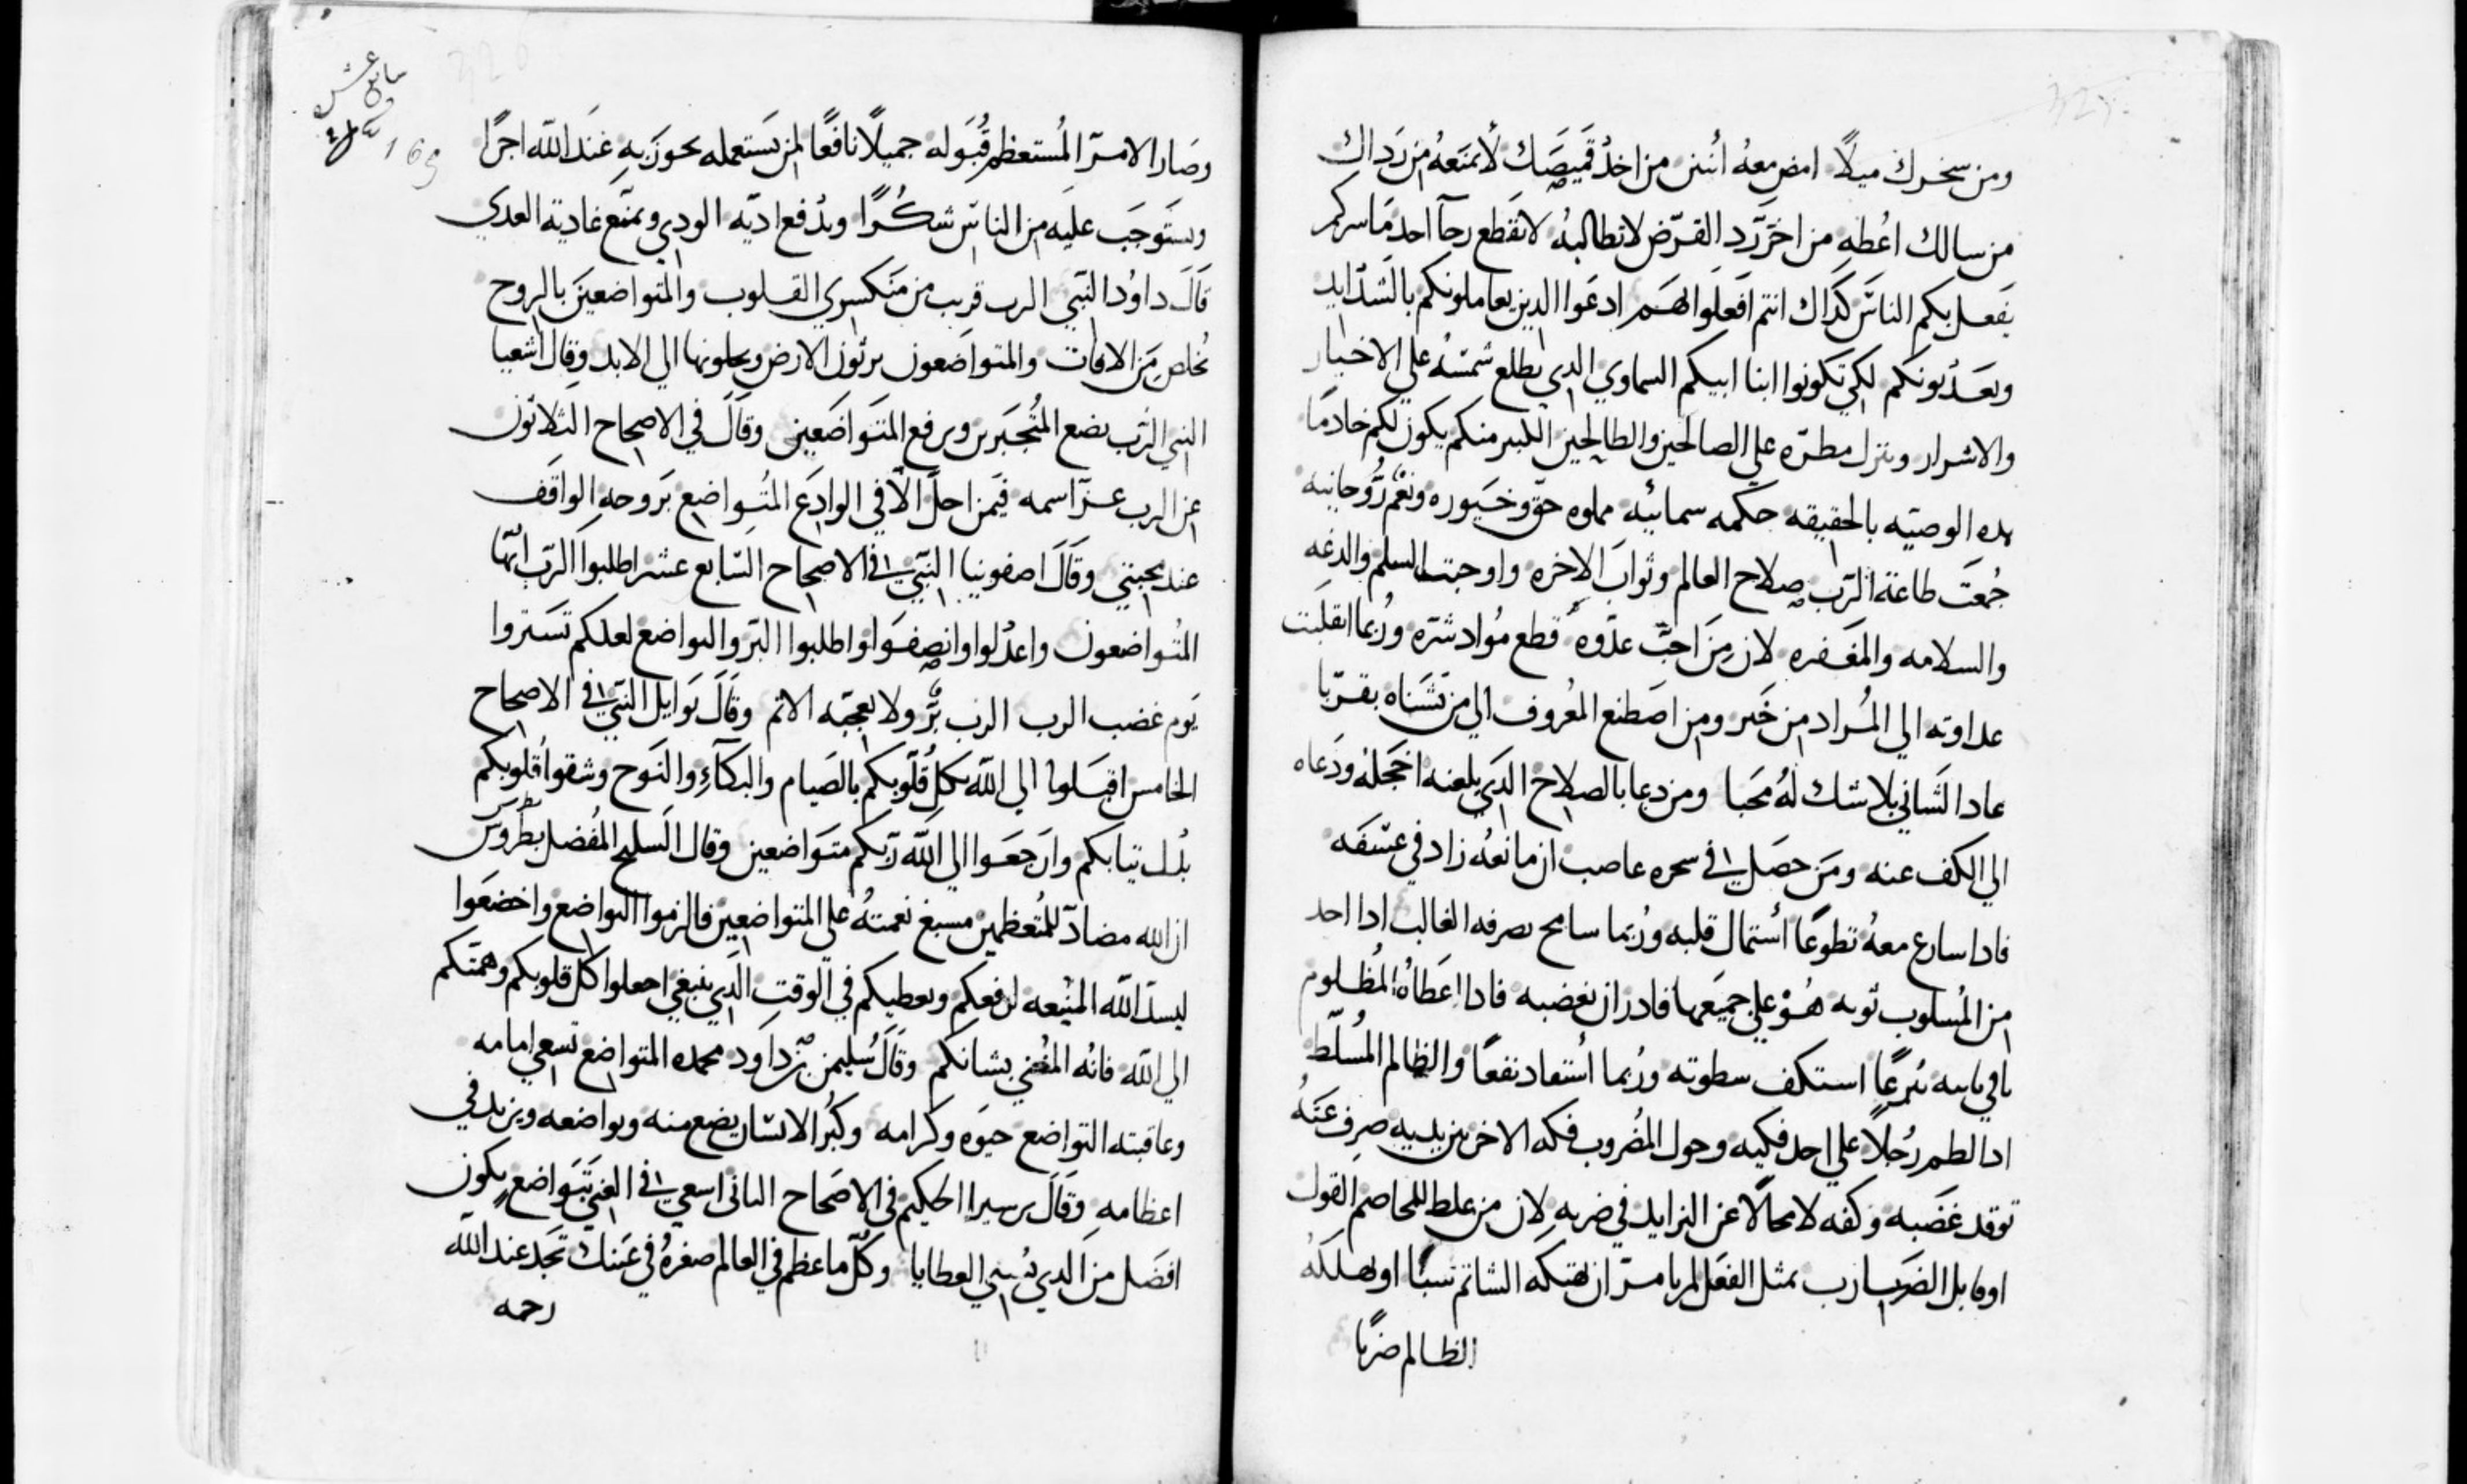 ومن سخرك ميلًا امض معهُ اثنين من اخدُ قميصَك لا تمنعهُ من رداك
من سالك اعُطه من اخرّ رد القرّض لا تطالبهُ لا تقطع رجآ احد ما سركم
يفعل بكم الناسَ كداك انتم افعلوا لهم ادعوا الدين يعاملونكم بالشدايد
ويعدبونكم لكي تكونوا ابنا ابيكم السماوي الدي يطلع شمسهُ علي الاخيار
والاشرار وينزل مطرّه علي الصالحين والطالحين الكبير منكم يكون لكم خادمًا
هده الوصيّه بالحقيقه حكمه سمائيه مملوه حق وخيوره ونعم روُحانيه
جُمعتَ طاعة الرّب صلاح العالم وثوابَ الاخره واوجبت السلم والدعه
والسلامه والمغفره لان منَ احبّ عدّوه قطع مُواد شرّه ورُبما انقلبت
عداوته الي المُراد من خَير ومن اصَطنع المعُروف الي من تشَناه بقرّبا
عاد الشاني بلا شك لهُ محَبا ومن دعا بالصلاح الدي يلعنه اخجلهُ ودَعاه
الي الكف عنه ومَن حصَل في سحره عاصب ان مانعهُ زاد في عسَفه
فادا سارع معهُ تطوعًا اُستمال قلبه ورُبما سامح بصرفه الغالب ادا احد
من المُسلوب توبه هُوْ علي جميَعها قادر ان يغضبه فادا اعَطاهُ المُظلوم
باقي ثيابه تبرعًا استكف سطوته ورُبما اُستفاد نفعًا والظالم المُسلّط
ادا لطم رُجلًا علي احد فكيه وحول المضُروب فكه الاخر بين يديه صرف عَنهُ
توقد غضَبه وكفه لا محالًا عن التزايد في ضربه لان من غلط للمخاصم القول
او قابل الضَرب بمثل الفعَل لم يامنّ ان يهتكه الشاتم سبًا او يهلكهُ
الظالم ضربًا
وصَار الامرّ المُستعظم قُبَوله جميلًا نافعًا لمن يَستعمله يحوزَ به عندَ الله اجرًا
ويستَوجَب علَيه من الناسّ شكُرًا ويدُفع اديّه الودي ويمنّع غاديته العدي
قالَ داوُد النبي الرب قريب من منَكسري القلوب والمتواضعينَ بالروح
يُخلص منَ الافات والمتواضعون يرثُون الارض ويحلونها الي الابد وقال اشعيا
النبي الرّب يضع المُتجَبرين ويرفع المتَواضعَين وقالَ في الاصحاح الثلاثون
عن الرب عزّ اسمه فيَمن احلّ الّا في الوادعَ المتُواضع برَوحه الواقف
عند محبتي وقالَ اصفونيا النبيّ في الاصحاح السّابع عشر اطلبوا الرّب ايّها
المتُواضعون واعدُلوا وانصفَوا واطلبوا البّر والتواضع لعلكم تسَتروا
يَوم غضب الرب الرب برّ ولا يعجبّه الاتم وقالَ يَوايل النبيّ في الاصحاح
الخامس اقبَلوا الي الله بكل قُلوبكم بالصَيام والبكآءِ والنَوح وشقوا قُلوبكم
بدُل تيابكم وارَجعَوا الي الله رّبكم متَواضعين وقال السَليح المُفضل بطرُوسَ
ان الله مضادّ للمُتعظمين مسبغ نعمتهُ علي المتواضعين فالزموا التواضع واخضعَوا
ليد الله المنُيعه لترفعكم ويعطيكم في الوقت الدي ينبغي اجعلوا كل قلوبكم وهمتّكم
الي الله فانُه المعُني بشانكم وقالَ سُليمن بن داوَد محمده المتواضع تسعي امامه
وعاقبته التواضع حيَوه وكرامه وكبُر الانسّان يضع منه وتواضعه ويزيد في
اعظامه وقالَ برسيرا الحكيم في الاصَحاح التاني اسعي في الغني تبَواضع يكون
افضَل منَ الدي يُسني العطايا وكُل ما عظم في العالم صغرهُ في عَينك تَجد عند الله
رحمه